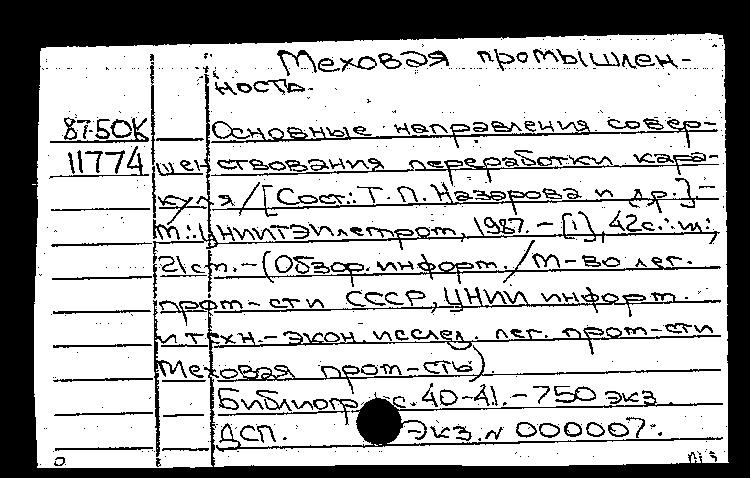 Меховая промышлен-
ность.
87-5ОК Основные направления совер-
11774 шенствования переработки кара-
куля / [Сост.: Т. П. Назарова и др.] -
М.: ЦНИИТЭИлегпром, 1987. - [1], 42с.: ил.;
21см. - (Обзор. информ. / М-во лег.
пром-сти СССР, ЦНИИ информ.
и техн.-экон. исслед. лег. пром-сти
Меховая пром-сть).
Библиогр.: с. 40-41. - 750 экз.
ДСП. Экз. № 000007.